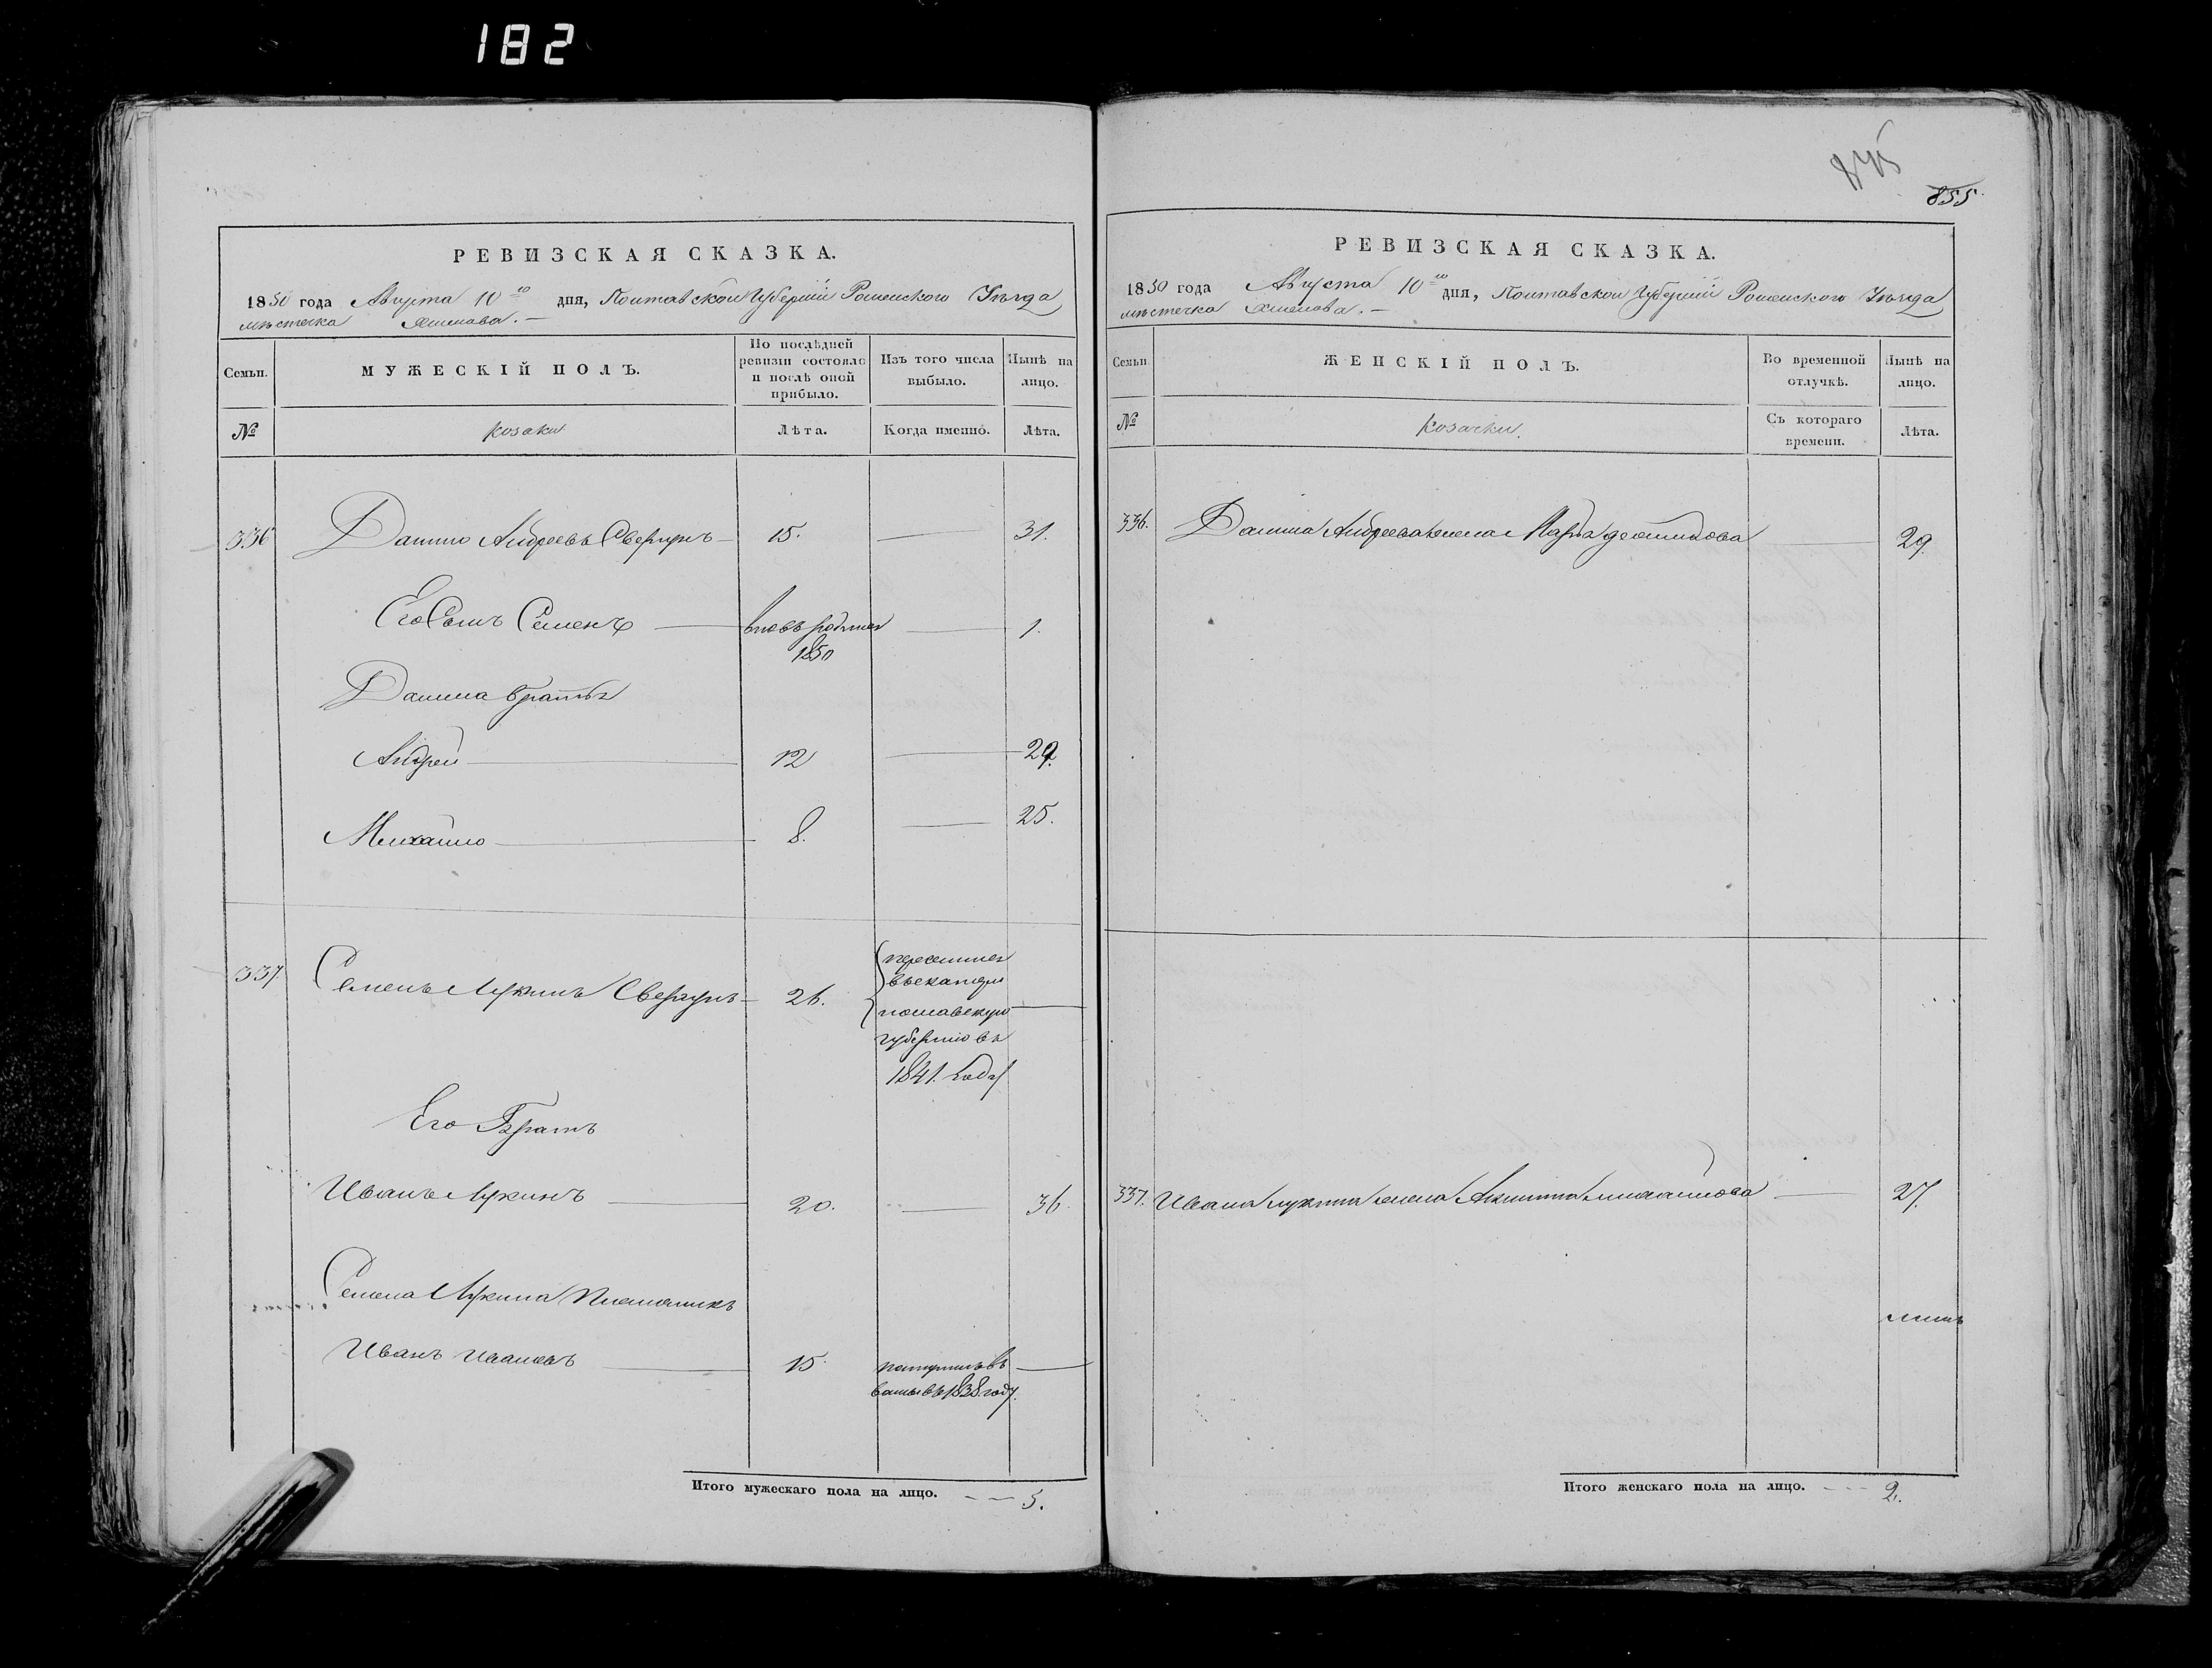 182
855
РЕВИЗСКАЯ СКАЗКА.
1850 года Августа 10го дня, Полтавской Губернии Роменского Уѣзда
мѣстечка Хмелова. —
Семьи.
МУЖЕСКІЙ ПОЛЪ.
По послѣдней ревизіи состояло и послѣ оной прибыло.
Изъ того числа выбыло.
Нынѣ на лицо.
№
козаки
Лѣта.
Когда именно.
Лѣта.
336 Данило Андреевъ Свергунъ 15. — 31.
Его Сынъ Семенъ — вновь родился — 1.
1850
Данила братья
Андрей — 12 — 29.
Михайло — 8. — 25.
337. Семенъ Лукинъ Свергунъ — 26.
переселился
въ екатери
нославскую
губернію въ
1841. Году
Его Братъ
Иванъ Лукинъ — 20. — 36.
Семена Лукина Племяникъ
Иванъ Ивановъ — 15. —
въ 1838 году.
Итого мужескаго пола на лицо. — — 5.
РЕВИЗСКАЯ СКАЗКА.
1850 года Августа 10го дня, Полтавской Губернии Роменского Уѣзда
мѣстечка Хмелова. —
Семьи
ЖЕНСКІЙ ПОЛЪ.
Во временной отлучкѣ.
Нынѣ на лицо.
№
козачки.
Съ котораго времени.
Лѣта.
336. Данила Андреева жена Марфа — 29.
337. Ивана Лукина жена Михайлова — 27.
Итого женскаго пола на лицо. — — 2.